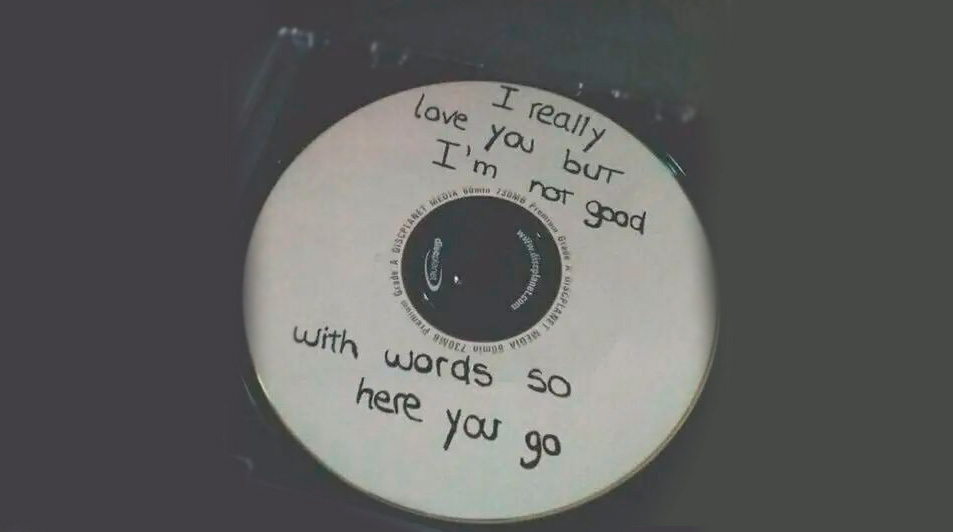 I really
love you but
I'm not good
with words so
here you go
DISCPLANET MEDIA 80min 730MB Premium Grade A DISCPLANET MEDIA 80min 730MB Premium Grade A
discplanet
www.discplanet.com